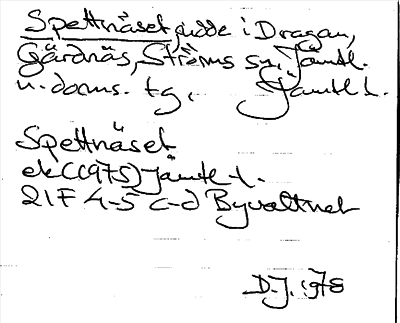 Spettnäset, udde i Dragan,
Gärdnäs, Ströms sn, Jämtl.
n. doms. tg, Jämtl l.
Spettnäset
ek (1975) Jämtl-l.
21F 4-5 c-d Byvattnet
D.J. 1978